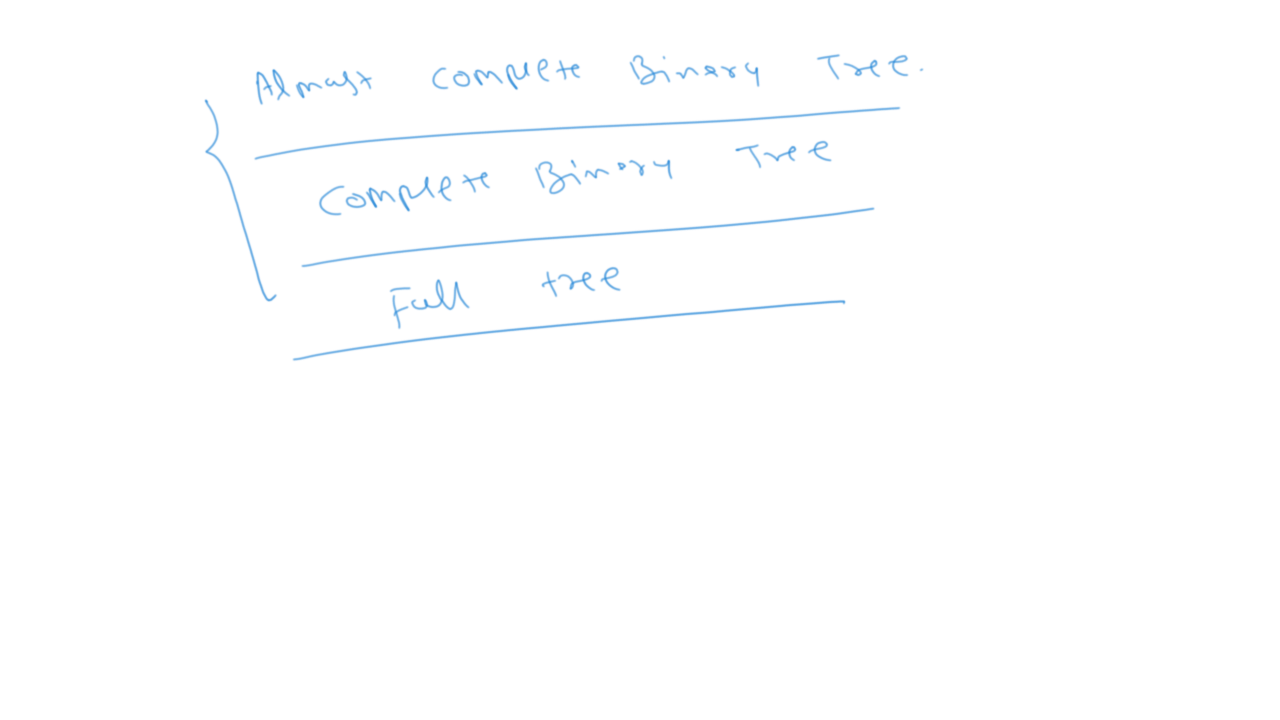 Almost Complete Binary Tree.
Complete Binary Tree
Full tree